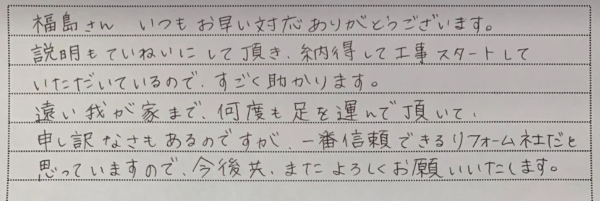 福島さん いつもお早い対応ありがとうございます。
説明もていねいにして頂き、納得して工事スタートして
いただいているので、すごく助かります。
遠い我が家まで、何度も足を運んで頂いて、
申し訳なさもあるのですが、一番信頼できるリフォーム社だと
思っていますので、今後共、またよろしくお願いいたします。